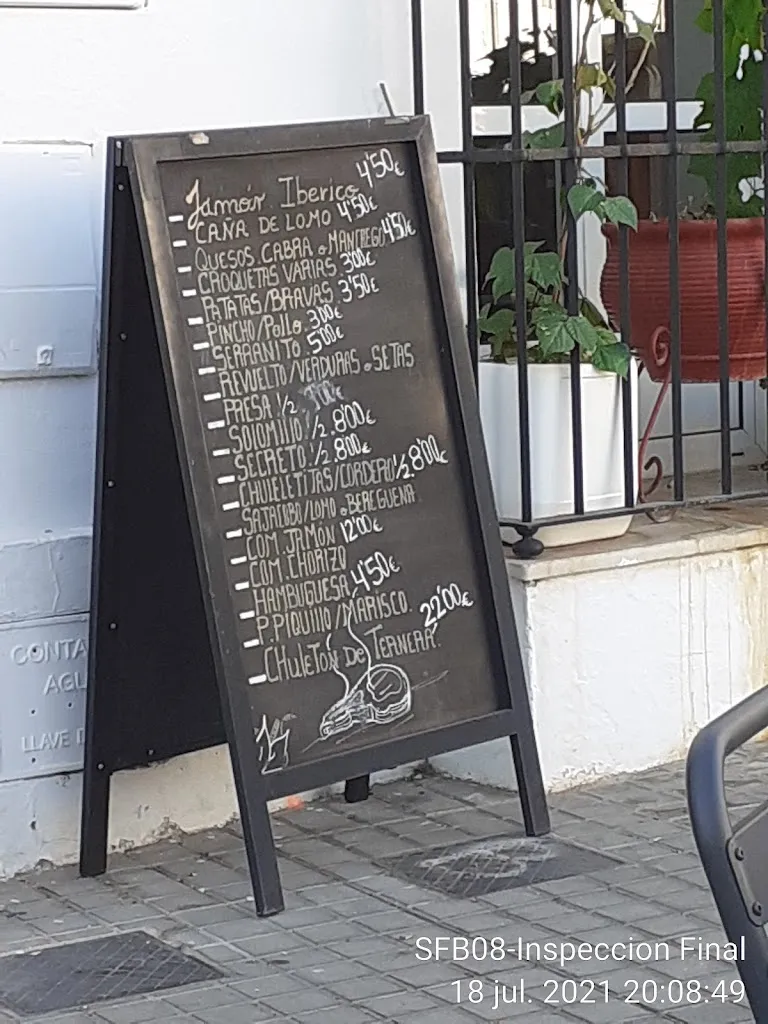 Jamón Iberico 4'50€
CAÑA DE LOMO 4'50€
QUESOS CABRA o MANCHEGO 4'50€
CROQUETAS VARIAS 3'00€
PATATAS/BRAVAS 3'50€
PINCHO/Pollo 3'00€
SERRANITO 5'00€
REVUELTO/VERDURAS o SETAS
PRESA 1/2
SOLOMILLO 1/2 8'00€
SECRETO 1/2 8'00€
CHULELITJAS/CORDERO 1/2 8'00€
SAJACOBO/LOMO o BEREGUENA
COM. JAMON 12'00€
COM. CHORIZO
HAMBUGUESA 4'50€
P. PIQUILLO/MARISCO.
CHULETON De TERNERA 22'00€
CONTA
AGU
LLAVE
SFB08-Inspeccion Final
18 jul. 2021 20:08:49